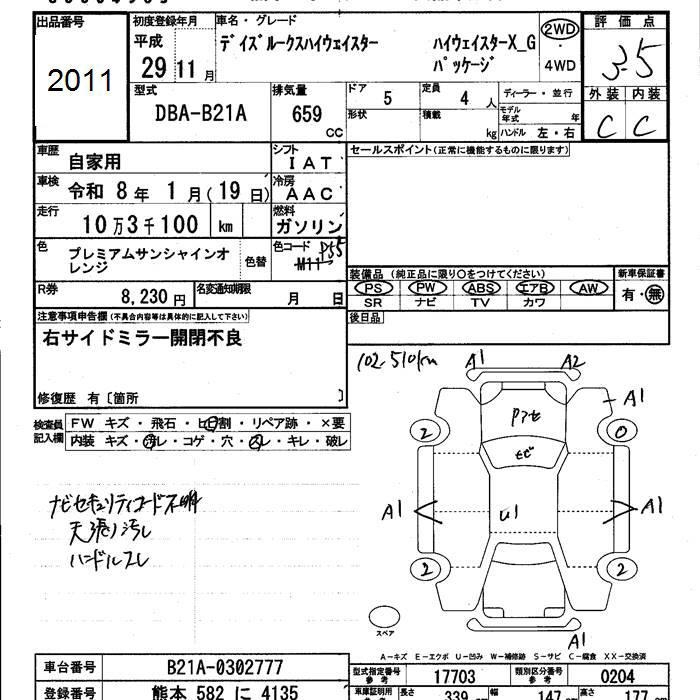 出品番号
2011
初度登録年月
平成
29年11月
車名・グレード
デイズルークスハイウェイスター
ハイウェイスターX_G
パッケージ
2WD
4WD
評価点
3.5
外装 内装
C C
型式
DBA-B21A
排気量
659
CC
ドア
5
定員
4人
形状
積載
kg
ディーラー・並行
モデル年式 年
ハンドル 左・右
車歴
自家用
シフト
IAT
車検
令和 8年 1月(19日)
冷房
AAC
走行
10万3千100 km
燃料
ガソリン
色
プレミアムサンシャインオ
レンジ
色替
色コード
M11
R券
8,230円
名変通知期限
月 日
セールスポイント(正常に機能するものに限ります)
装備品(純正品に限り○をつけてください)
PS PW ABS エアB AW
SR ナビ TV カワ
新車保証書
有・無
後日品
注意事項申告欄(不具合内容等は具体的に記入して下さい)
右サイドミラー開閉不良
修復歴 有〔箇所 〕
検査員
記入欄
FW キズ・飛石・ヒビ割・リペア跡・×要
内装 キズ・汚レ・コゲ・穴・凹レ・キレ・破レ
ナビセキュリティコード不明
天張り汚し
ハンドルスレ
102.510km
A1 A2
A1
Pアセ
2 0
セビ
A1 A1
U1
2 2
スペア
A1
A-キズ E-エクボ U-凹み W-補修跡 S-サビ C-腐食 XX-交換済
車台番号
B21A-0302777
登録番号
熊本 582 に 4135
型式指定番号
参考
17703
類別区分番号
参考
0204
車庫証明用
長さ 339 cm 幅 147 cm 高さ 177 cm